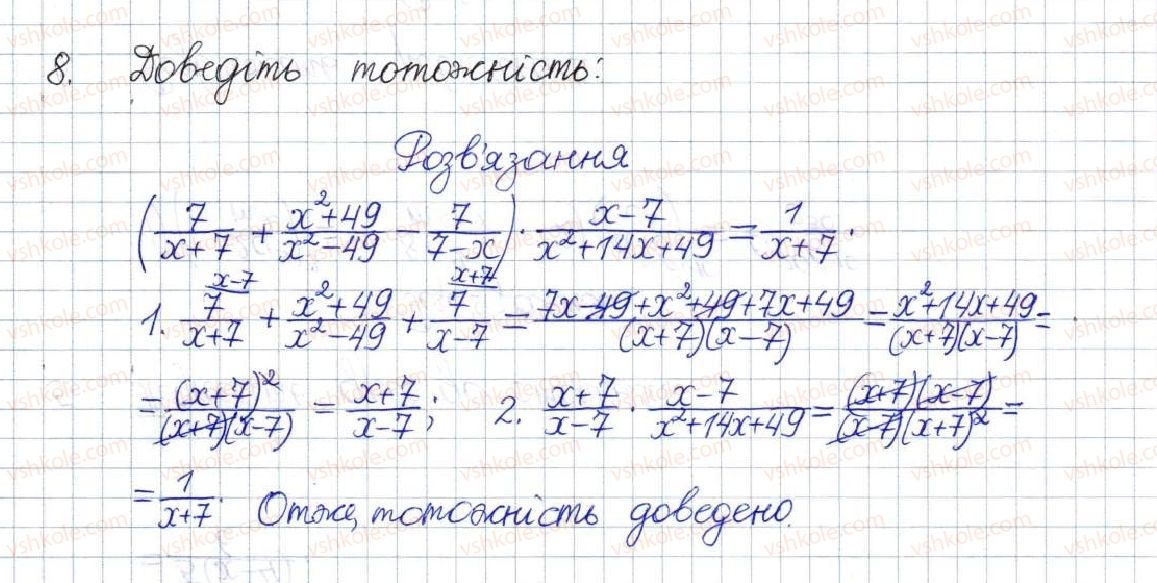 8. Доведіть тотожність:
Розв'язання
(7/(x+7) + (x²+49)/(x²-49) - 7/(7-x)) · (x-7)/(x²+14x+49) = 1/(x+7).
1. 7/(x+7) (x-7) + (x²+49)/(x²-49) + 7/(x-7) (x+7) = (7x-49+x²+49+7x+49)/((x+7)(x-7)) = (x²+14x+49)/((x+7)(x-7)) =
= (x+7)²/((x+7)(x-7)) = (x+7)/(x-7); 2. (x+7)/(x-7) · (x-7)/(x²+14x+49) = ((x+7)(x-7))/((x-7)(x+7)²) =
= 1/(x+7). Отже, тотожність доведено.